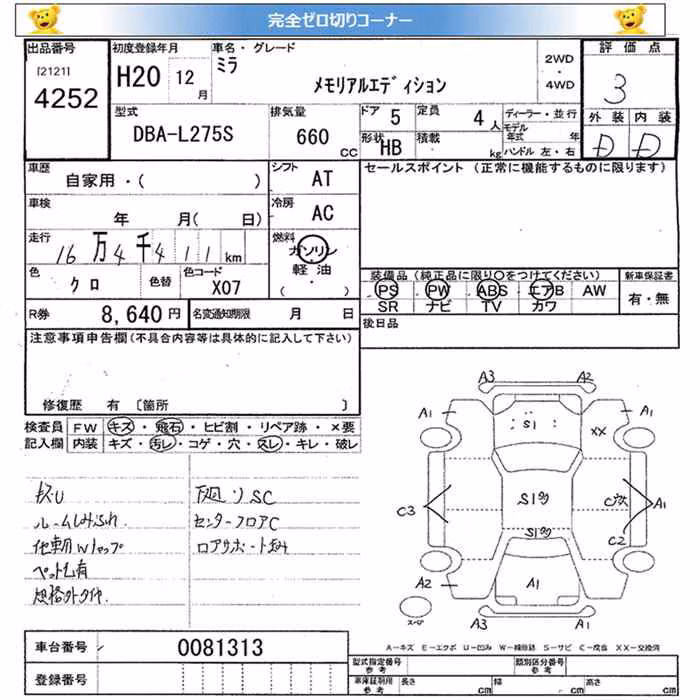 完全ゼロ切りコーナー
出品番号
[2121]
4252
初度登録年月
H20 12月
車名・グレード
ミラ
メモリアルエディション
2WD
・
4WD
評価点
3
外装 内装
D D
型式
DBA-L275S
排気量
660 CC
ドア 5
定員 4人
形状 HB
積載 kg
ディーラー・並行
モデル年式 年
ハンドル 左・右
車歴
自家用・( )
シフト AT
セールスポイント (正常に機能するものに限ります)
車検
年 月( 日)
冷房 AC
走行
16万4千411km
燃料
ガソリン
軽油
( )
色
クロ
色替
色コード
X07
装備品(純正品に限り○をつけてください)
PS PW ABS エアB AW
SR ナビ TV カワ
新車保証書
有・無
R券 8,640円
名変通知期限 月 日
後日品
注意事項申告欄(不具合内容等は具体的に記入して下さい)
修復歴 有 〔箇所 〕
検査員記入欄
FW キズ・飛石・ヒビ割・リペア跡・×要
内装 キズ・汚レ・コゲ・穴・スレ・キレ・破レ
ルームしみ
ペット毛有
規格外タイヤ
下廻りSC
センターフロアC
A3 A2
A1 A1
S1 XX
C3 S1多 A1
S1多 C2
A2 A1
スペア A3 A1
A-キズ E-エクボ U-凹み W-補修跡 S-サビ C-腐食 XX-交換済
車台番号 0081313
登録番号
型式指定番号 参考
類別区分番号 参考
車庫証明用 参考
長さ cm
幅 cm
高さ cm